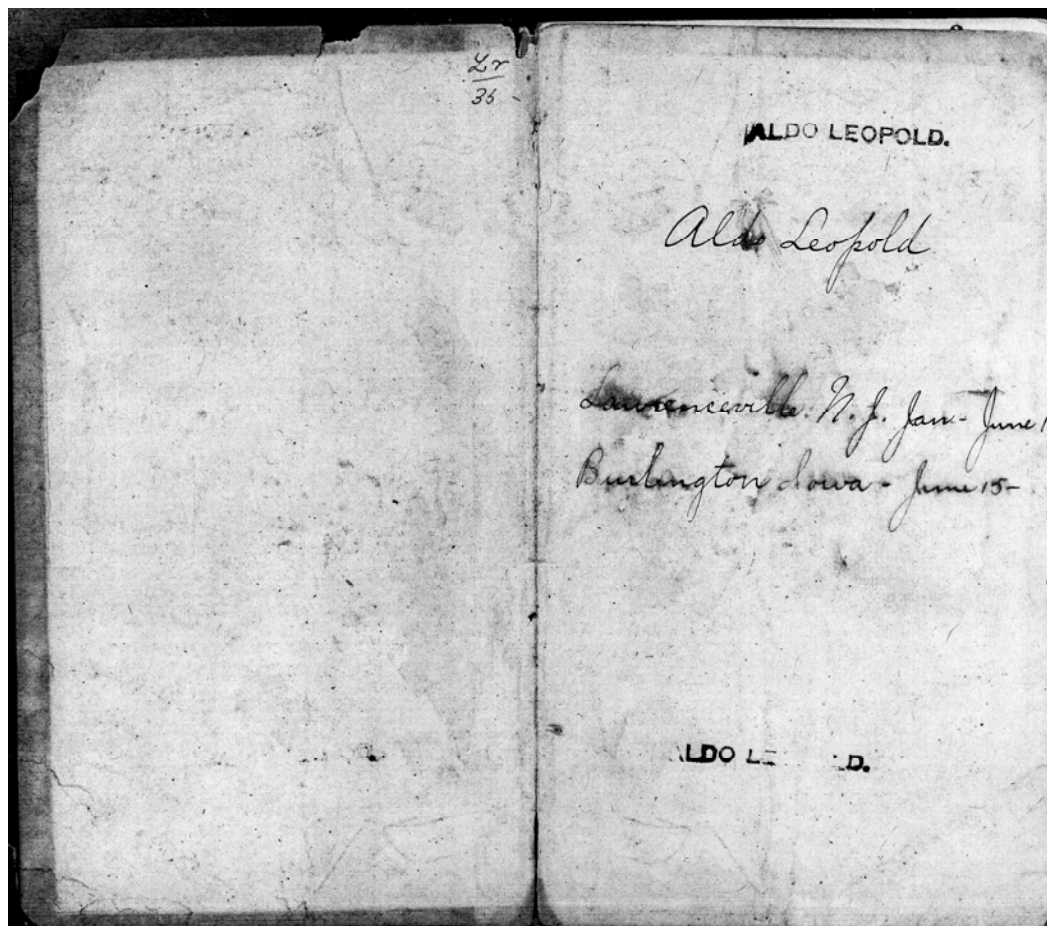 35
ALDO LEOPOLD.
Aldo Leopold
Lawrenceville. N. J. Jan - June 1
Burlington Iowa - June 15 -
LDO LE D.